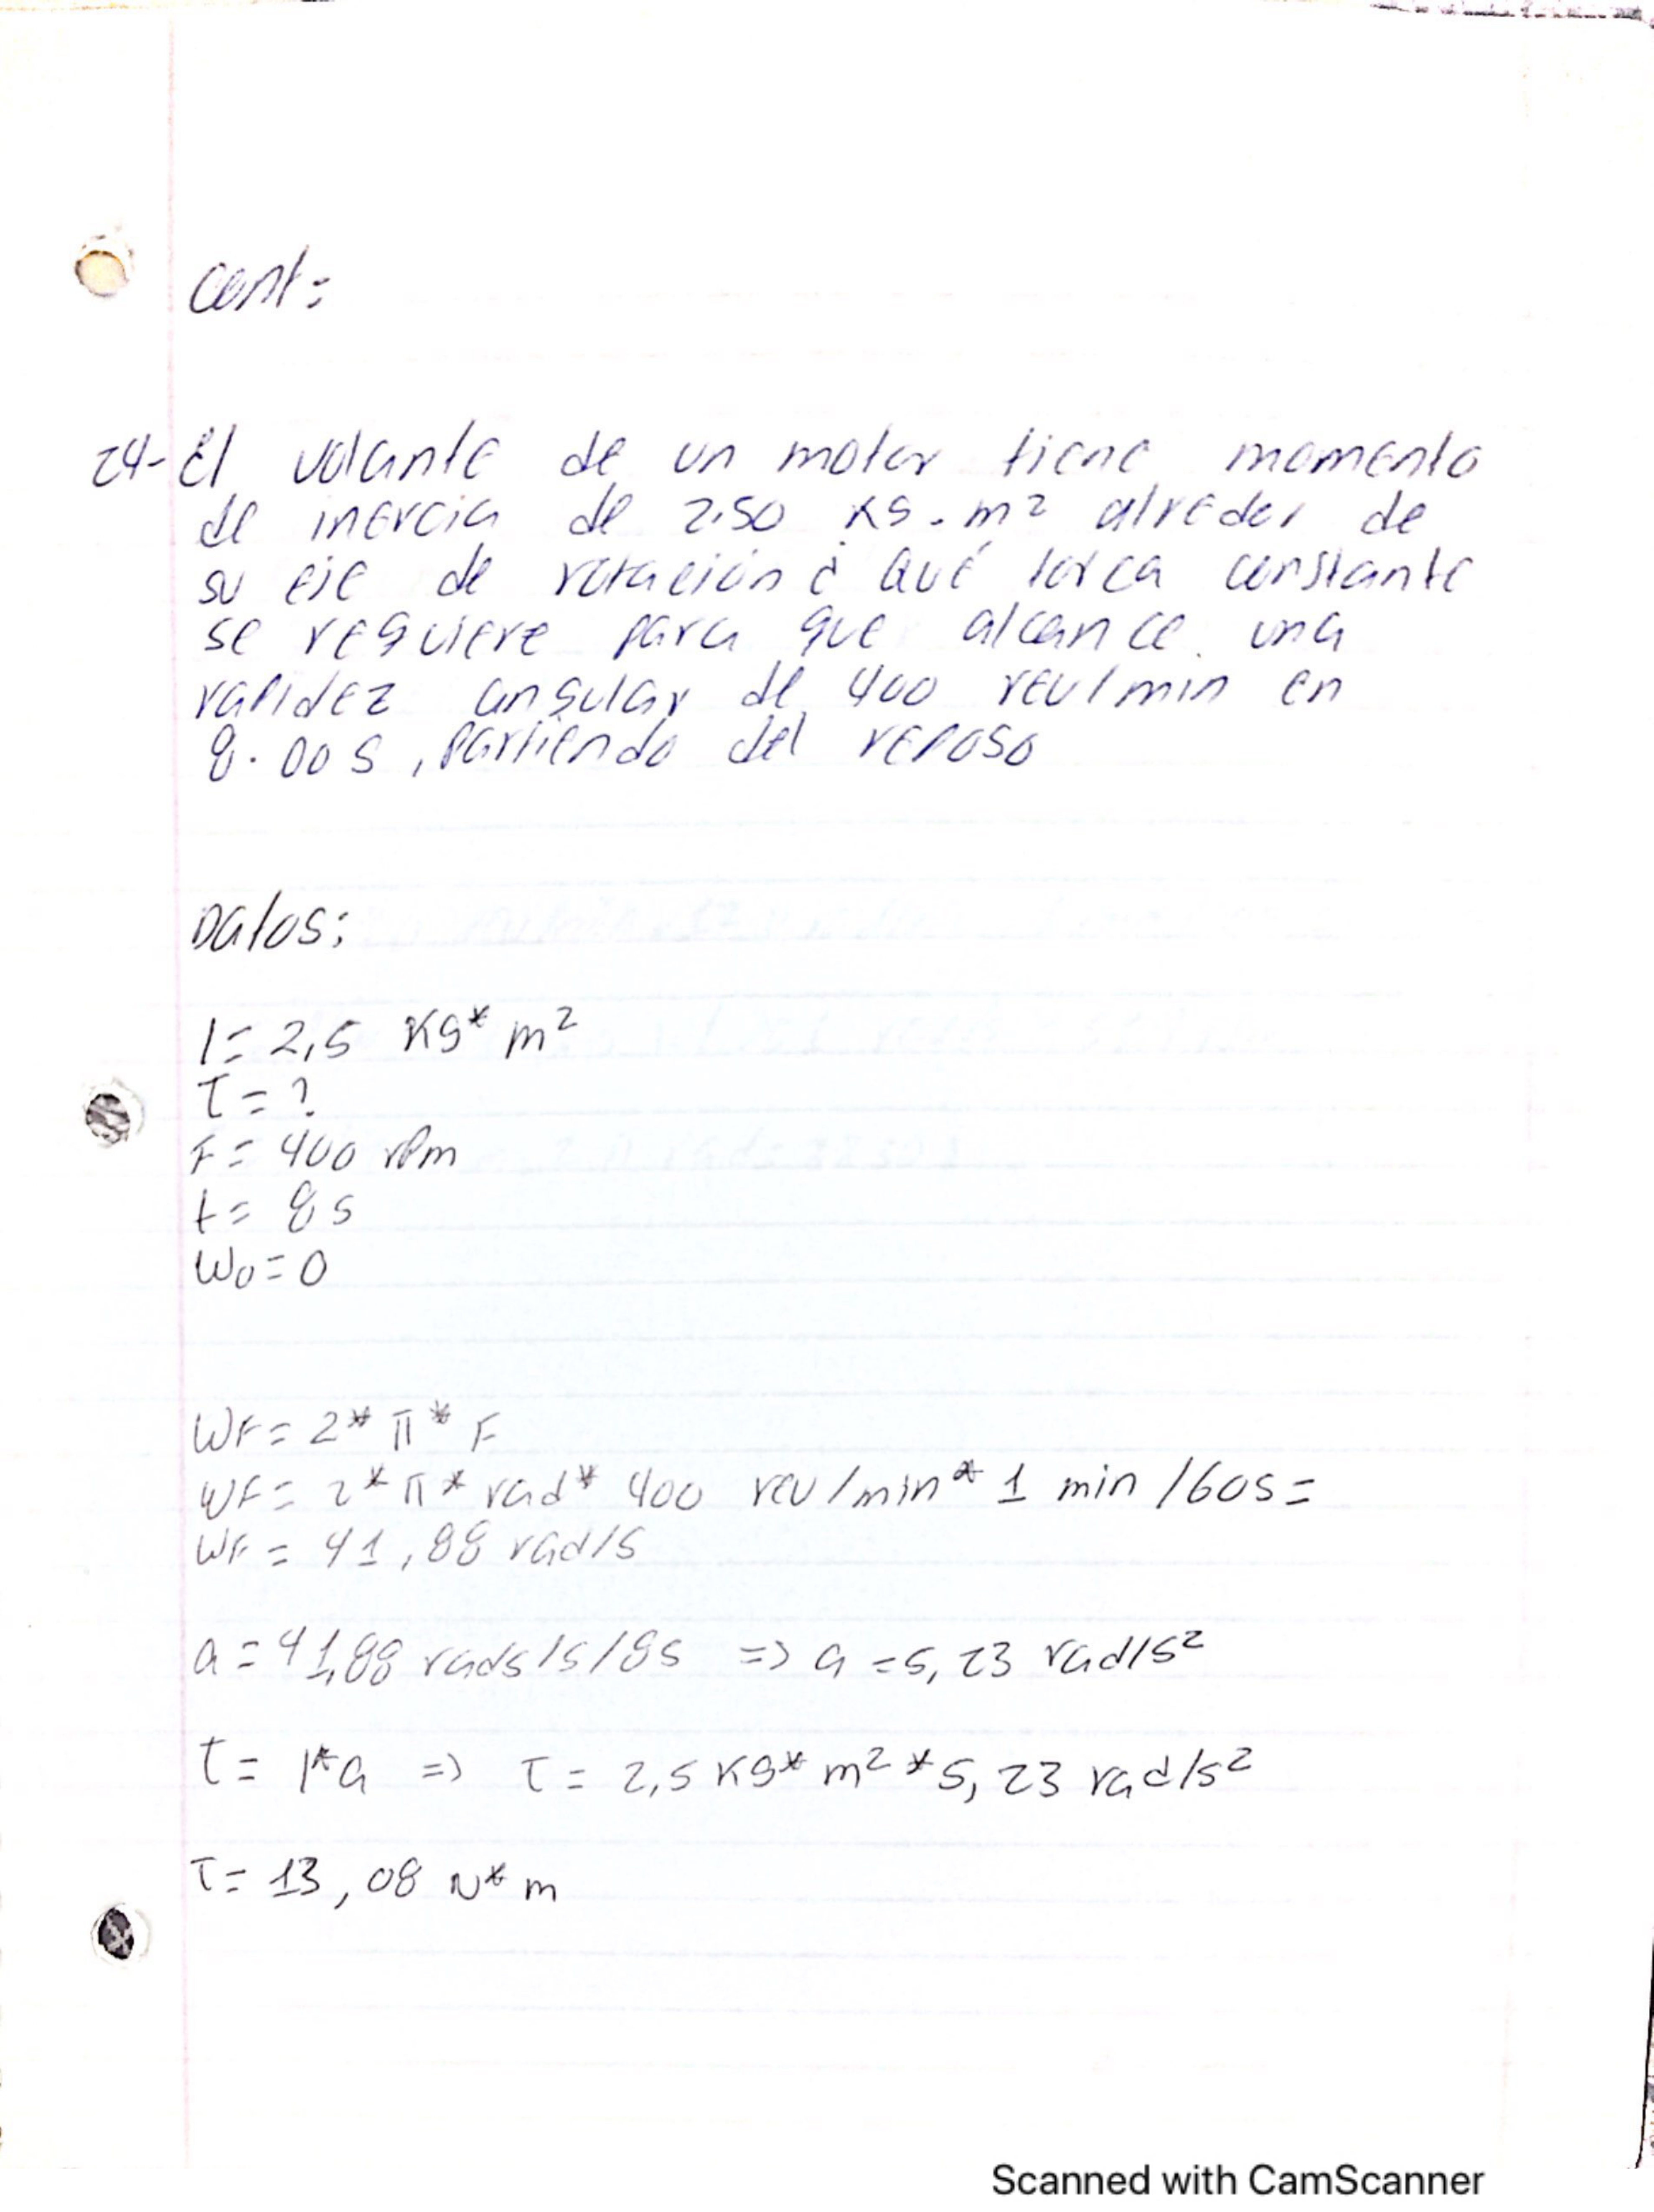 cont:
24- El volante de un motor tiene momento
de inercia de 2.50 kg. m² alreder de
su eje de rotación ¿ Qué torca constante
se requiere para que alcance una
rapidez angular de 400 rev/min en
8.00 s, partiendo del reposo
Datos:
I = 2,5 Kg* m²
T = ?
F = 400 rpm
t = 8 s
Wo = 0
WF = 2* π* F
WF = 2* π* rad* 400 rev/min* 1 min /60s =
WF = 41,88 rad/s
a = 41,88 rads/s/8s => a = 5,23 rad/s²
t = I*a => T = 2,5 Kg* m² * 5,23 rad/s²
T = 13,08 N* m
Scanned with CamScanner